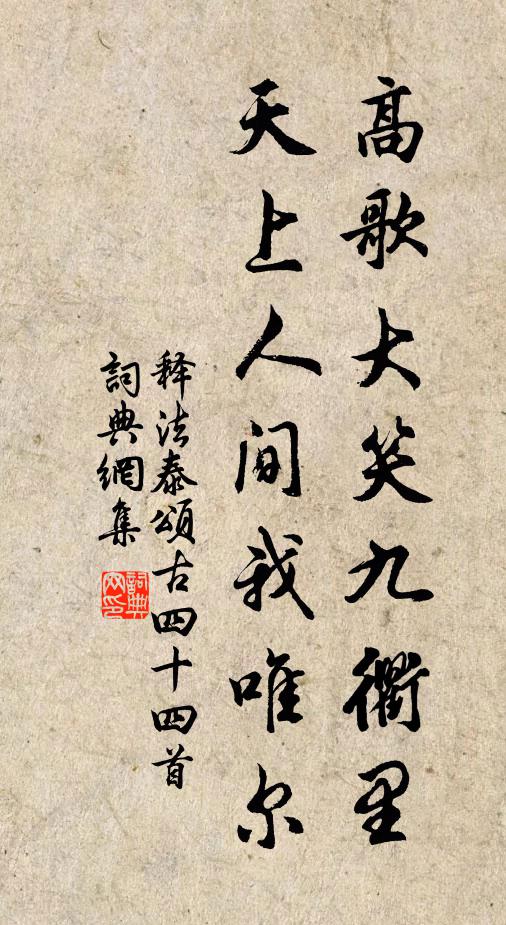 高歌大笑九衢里
天上人间我唯尔
释法泰颂古四十四首
詞典網集
詞典网印